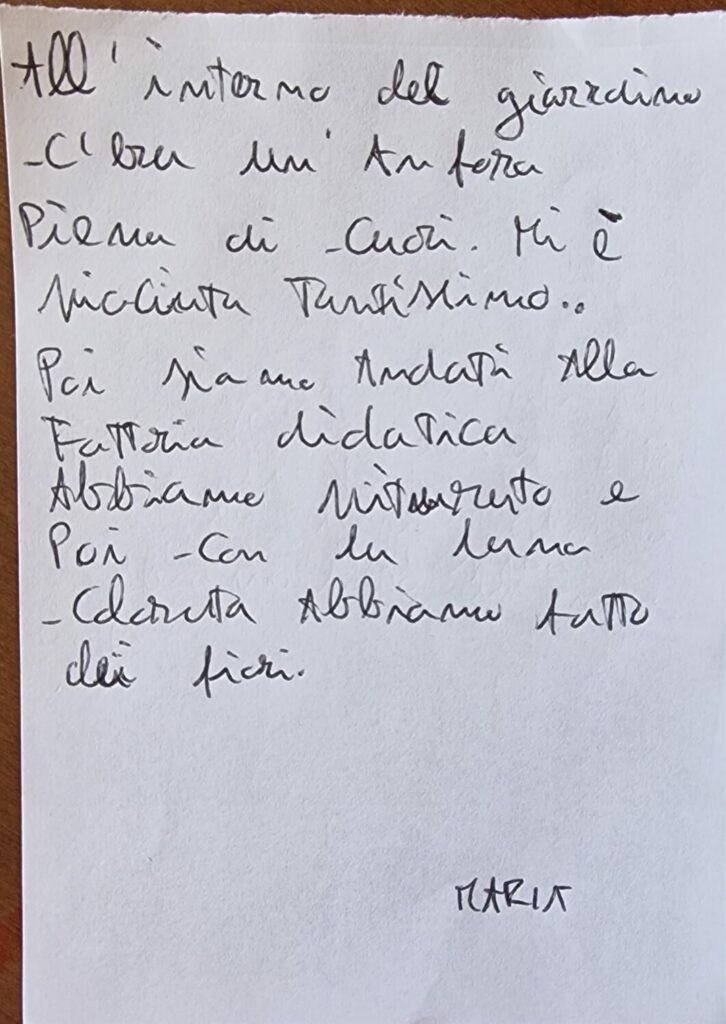 All' interno del giardino
C'era un' Anfora
Piena di Cuori. Mi è
piaciuta Tantissimo..
Poi siamo Andati Alla
Fattoria didattica
Abbiamo e
Poi Con la lana
Colorata Abbiamo fatto
dei fiori.
MARIA